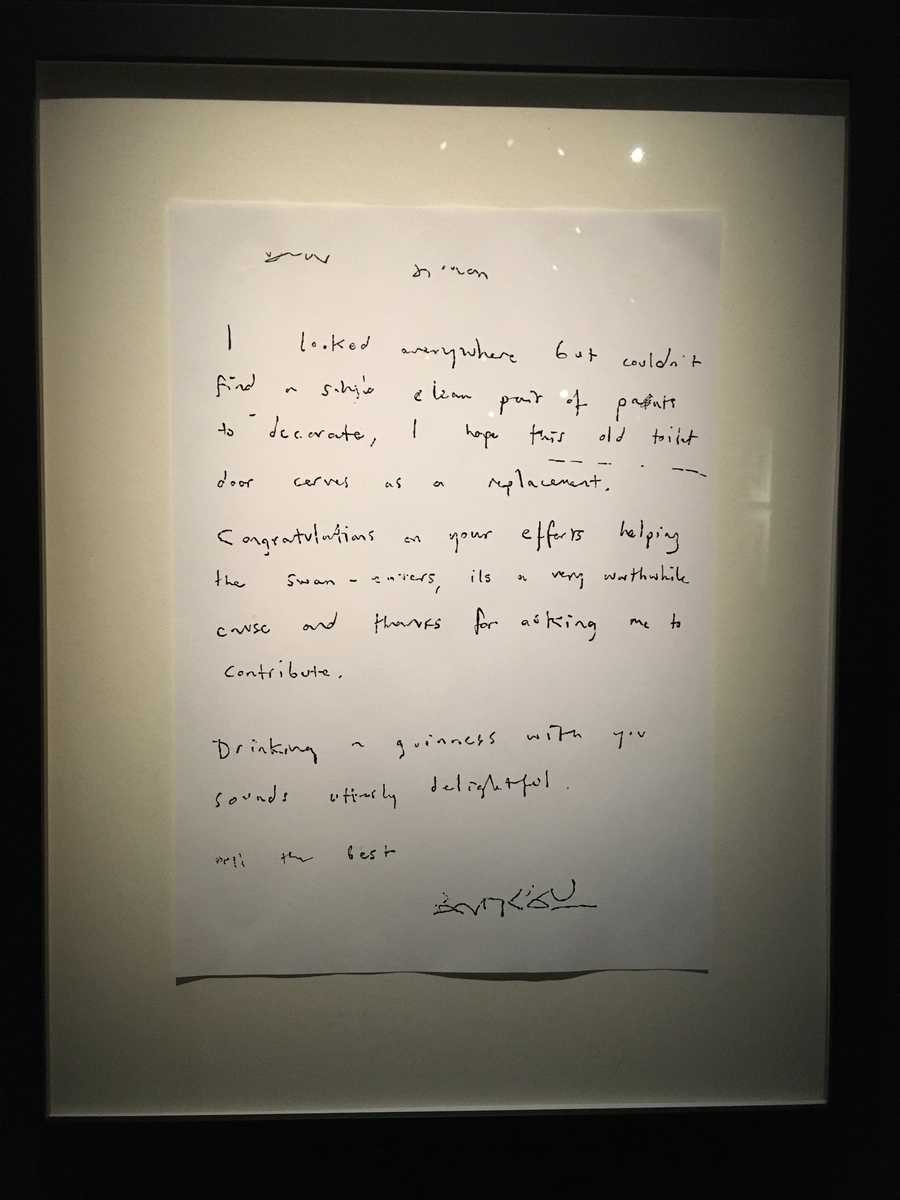 I looked everywhere but couldn't
find a single clean pair of pants
to decorate, I hope this old toilet
door cerves as a replacement.
Congratulations on your efforts helping
the swan-eaters, its a very worthwhile
cause and thanks for asking me to
contribute.
Drinking a guinness with you
sounds utterly delightful.
the best